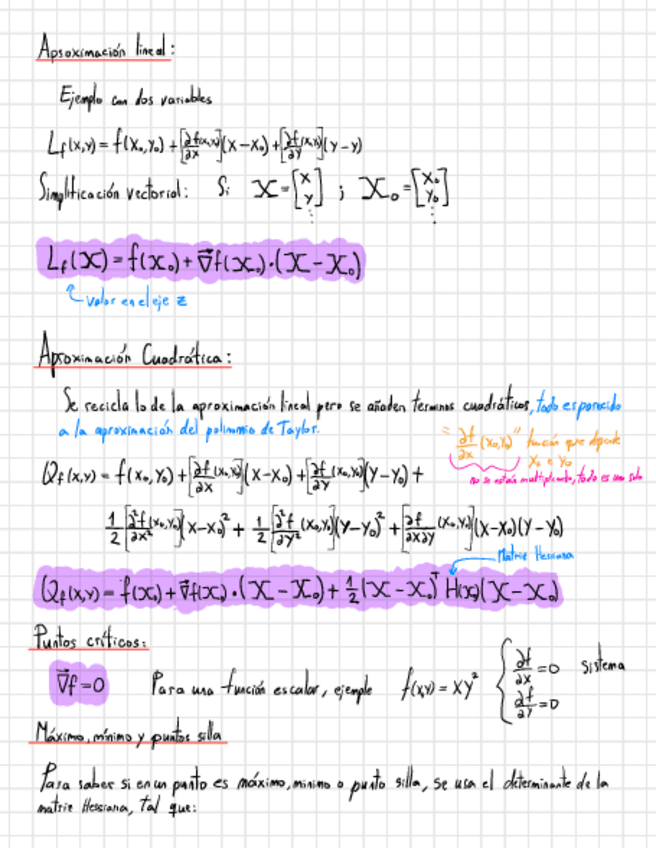 Aproximación lineal:
Ejemplo con dos variables
L_f(x,y) = f(x₀,y₀) + [∂f(x₀,y₀)/∂x](x-x₀) + [∂f(x₀,y₀)/∂y](y-y)
Simplificación vectorial: Si X = [x y ⋮] ; X₀ = [x₀ y₀ ⋮]
L_f(X) = f(X₀) + ∇⃗f(X₀)·(X-X₀)
valor en el eje z
Aproximación Cuadrática:
Se recicla lo de la aproximación lineal pero se añaden términos cuadráticos, todo es parecido
a la aproximación del polinomio de Taylor.
"∂f/∂x (x₀,y₀)" función que depende
x₀ e y₀
no se están multiplicando, todo es uno solo
Q_f(x,y) = f(x₀,y₀) + [∂f/∂x (x₀,y₀)](x-x₀) + [∂f/∂y (x₀,y₀)](y-y₀) +
1/2 [∂²f/∂x² (x₀,y₀)](x-x₀)² + 1/2 [∂²f/∂y² (x₀,y₀)](y-y₀)² + [∂f/∂x∂y (x₀,y₀)](x-x₀)(y-y₀)
Matriz Hessiana
Q_f(x,y) = f(X₀) + ∇⃗f(X₀)·(X-X₀) + 1/2 (X-X₀)ᵀ H(X₀)(X-X₀)
Puntos críticos:
∇⃗f = 0 Para una función escalar, ejemplo f(x,y) = xy² { ∂f/∂x = 0 ∂f/∂y = 0 Sistema
Máximo, mínimo y puntos silla
Para saber si en un punto es máximo, mínimo o punto silla, se usa el determinante de la
matriz Hessiana, tal que: